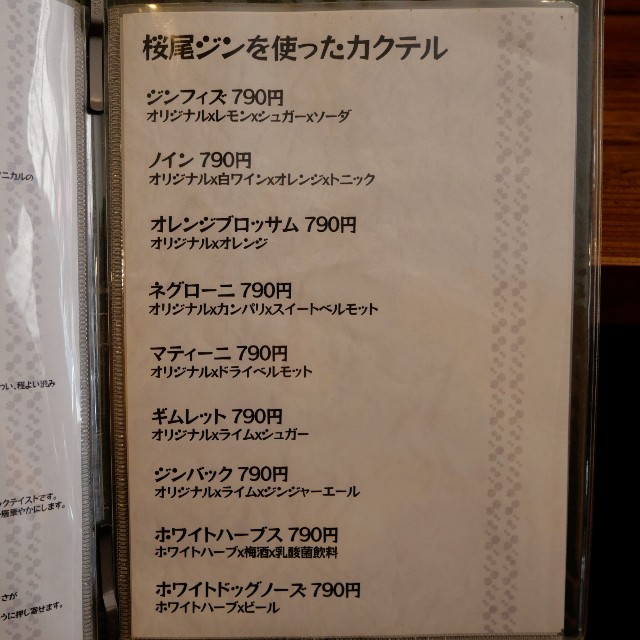 桜尾ジンを使ったカクテル
ジンフィズ 790円
オリジナルxレモンxシュガーxソーダ
ノイン 790円
オリジナルx白ワインxオレンジxトニック
オレンジブロッサム 790円
オリジナルxオレンジ
ネグローニ 790円
オリジナルxカンパリxスイートベルモット
マティーニ 790円
オリジナルxドライベルモット
ギムレット 790円
オリジナルxライムxシュガー
ジンバック 790円
オリジナルxライムxジンジャーエール
ホワイトハーブス 790円
ホワイトハーブx梅酒x乳酸菌飲料
ホワイトドッグノーズ 790円
ホワイトハーブxビール
ニカルの
わい、程よい渋み
クテイストです。
華やかにします。
さが
うに押し寄せます。